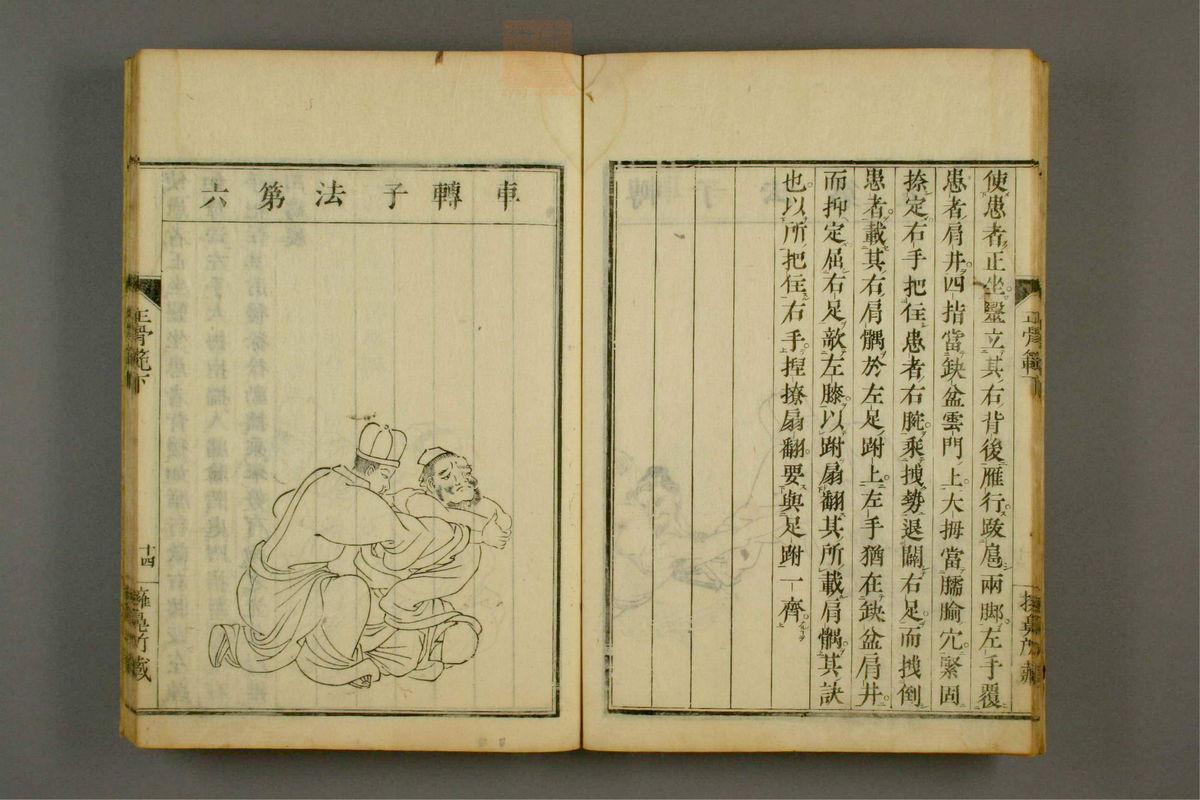 使患者正坐豎立其右背後雁行踆扈兩脚左手覆
患者肩井四指當缺盆雲門上大拇當臑腧穴緊固
捺定右手把住患者右腕乘拽勢退闢右足而拽倒
患者載其右肩髃於左足跗上左手猶在缺盆肩井
而抑定屈右足敵左膝以跗扇翻其所載肩髃其訣
也以所把住右手捏撩扇翻要與足跗一齊
車轉子法第六
正骨範下
十四